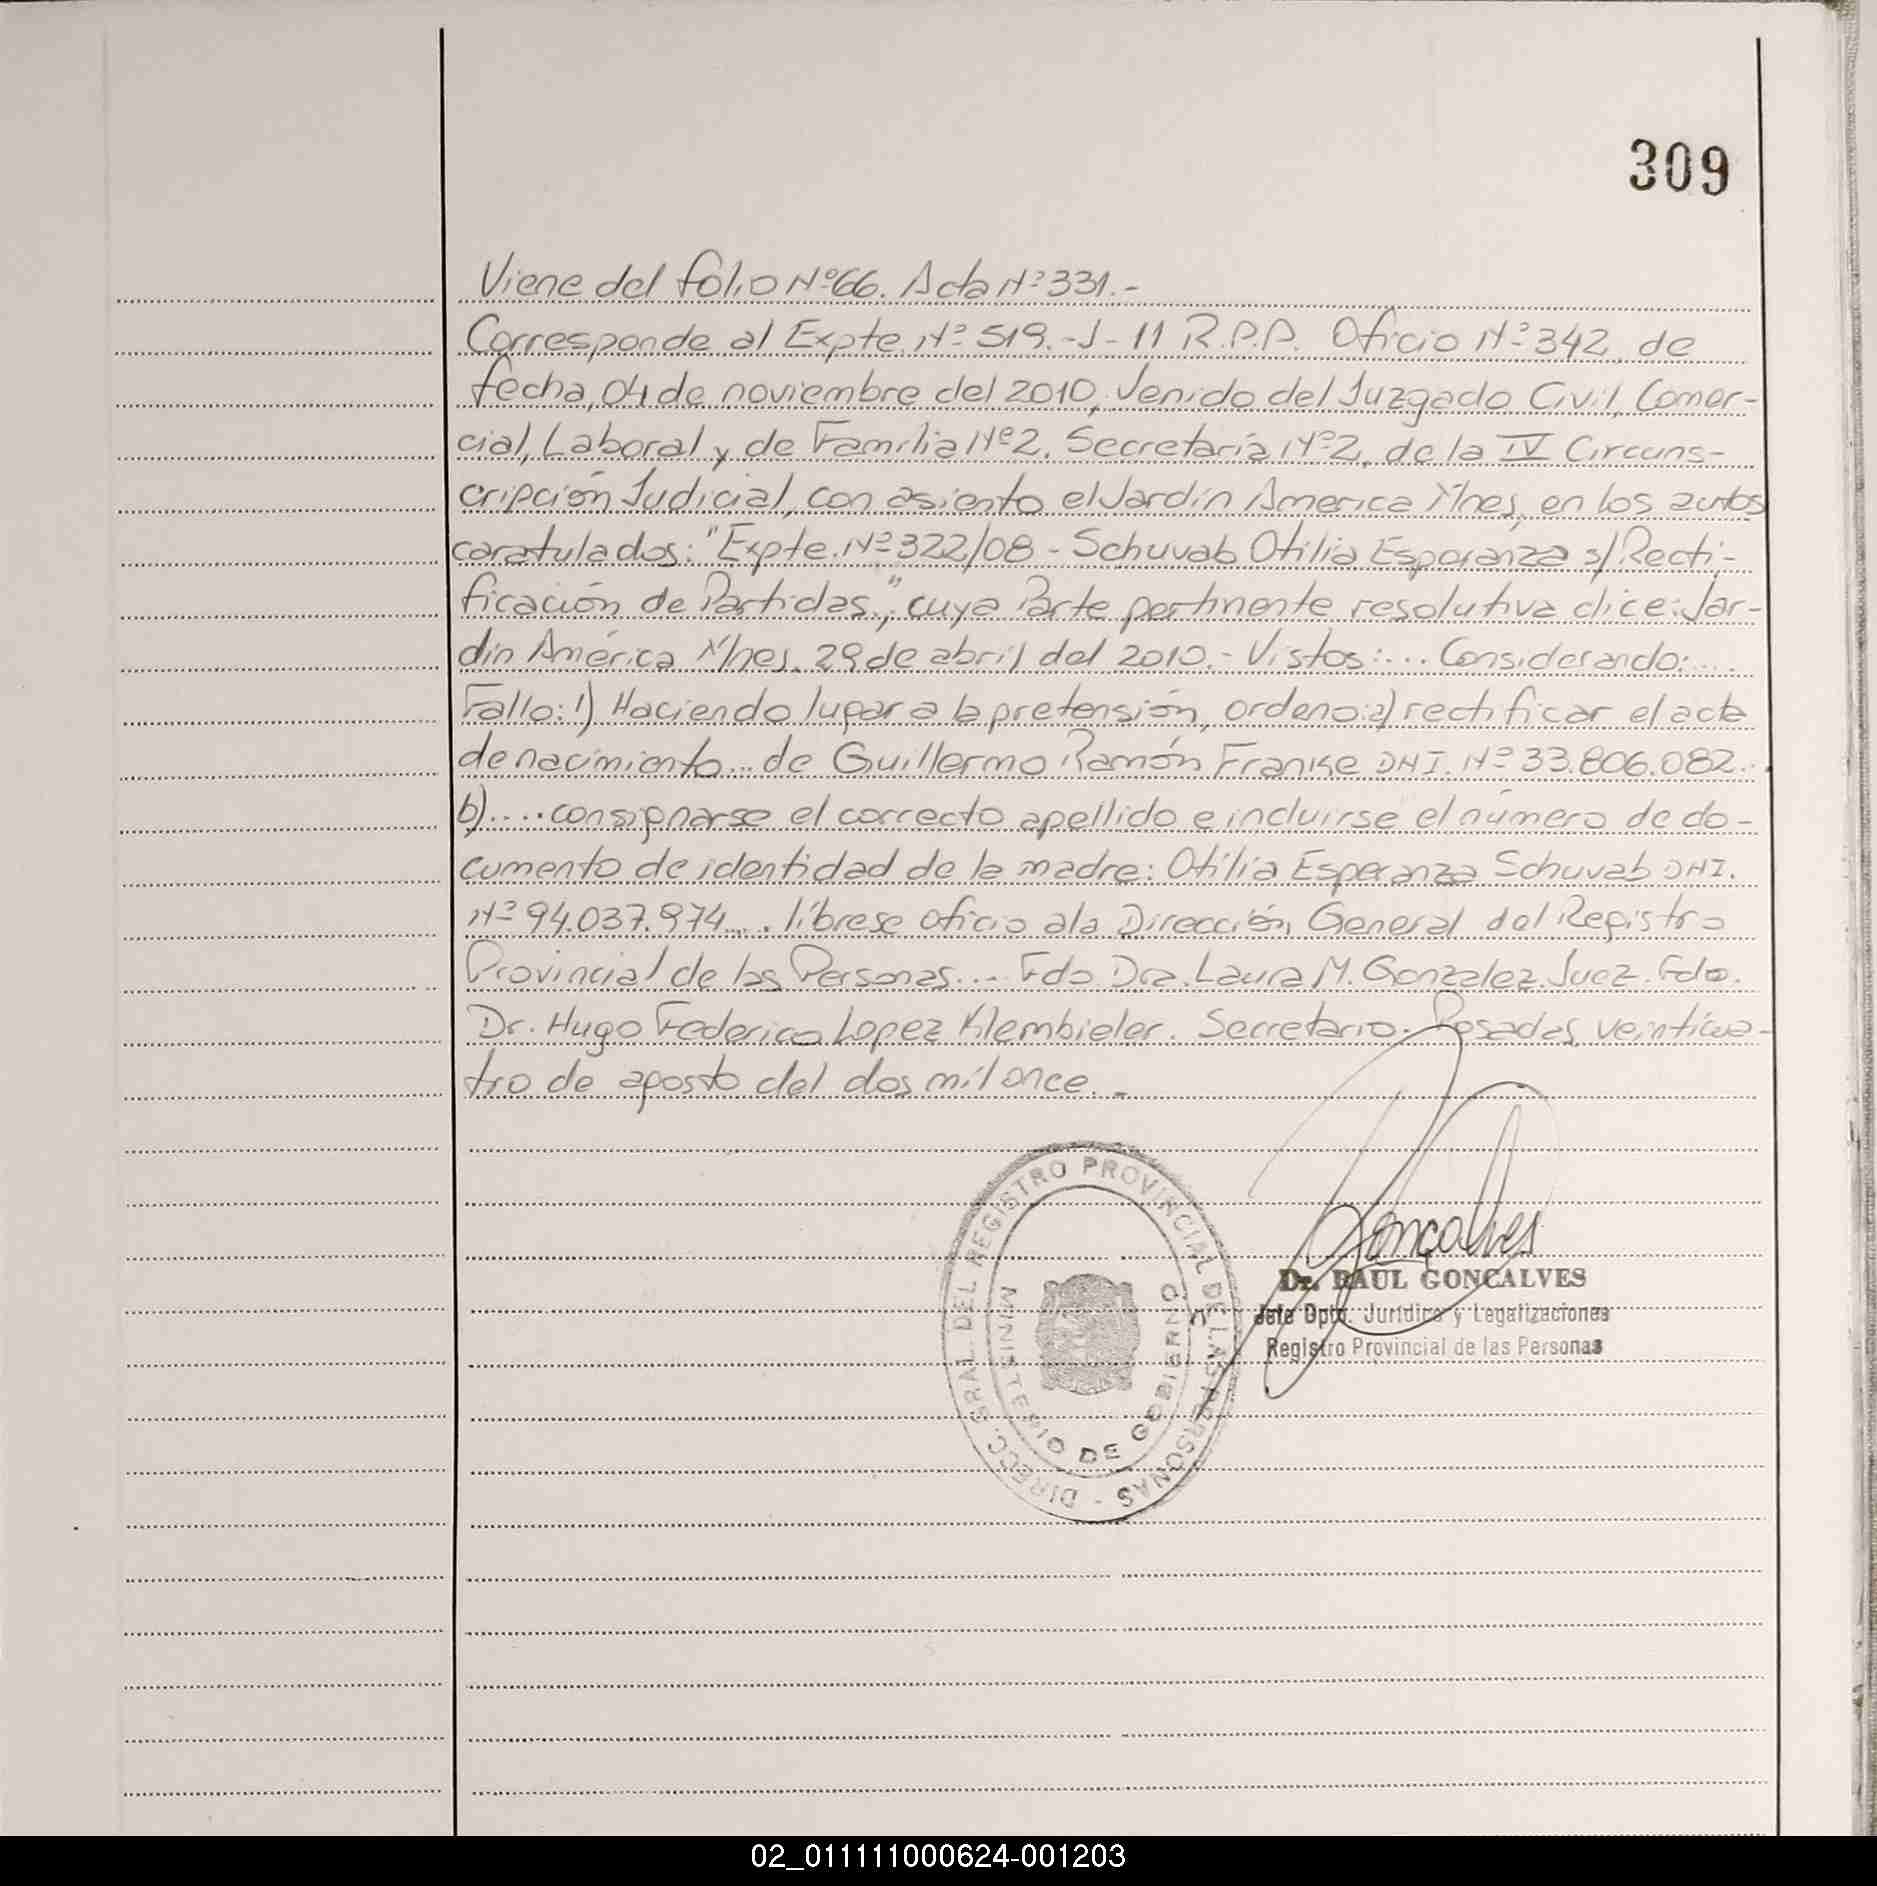 309
Viene del folio Nº66. Acta Nº331.-
Corresponde al Expte. Nº 519.-J-11 R.P.P. Oficio Nº342, de
fecha, 04 de noviembre del 2010, venido del Juzgado Civil, Comer-
cial, Laboral y de Familia Nº2, Secretaría Nº2, de la IV Circuns-
cripción Judicial, con asiento el Jardín America Mnes, en los autos
caratulados: "Expte. Nº322/08 - Schuvab Otilia Esperanza s/Recti-
ficación de Partidas", cuya Parte pertinente resolutiva dice: Jar-
dín América Mnes. 29 de abril del 2010.- Vistos:... Considerando:....
Fallo: 1) Haciendo lugar a la pretensión, ordeno: a) rectificar el acta
de nacimiento... de Guillermo Ramón Franke DNI. Nº 33.806.082..
b).... consignarse el correcto apellido e incluirse el número de do-
cumento de identidad de la madre: Otilia Esperanza Schuvab DNI.
Nº 94.037.974.... líbrese oficio a la Dirección General del Registro
Provincial de las Personas... Fdo Dra. Laura M. Gonzalez. Juez. Fdo.
Dr. Hugo Federico Lopez Klembieler. Secretario. Posadas, veinticua-
tro de agosto del dos mil once.-
DIRECC. GRAL. DEL REGISTRO PROVINCIAL DE LAS PERSONAS -
MINISTERIO DE GOBIERNO
Goncalves
Dr. RAUL GONCALVES
Jefe Dpto. Jurídico y Legalizaciones
Registro Provincial de las Personas
02_011111000624-001203